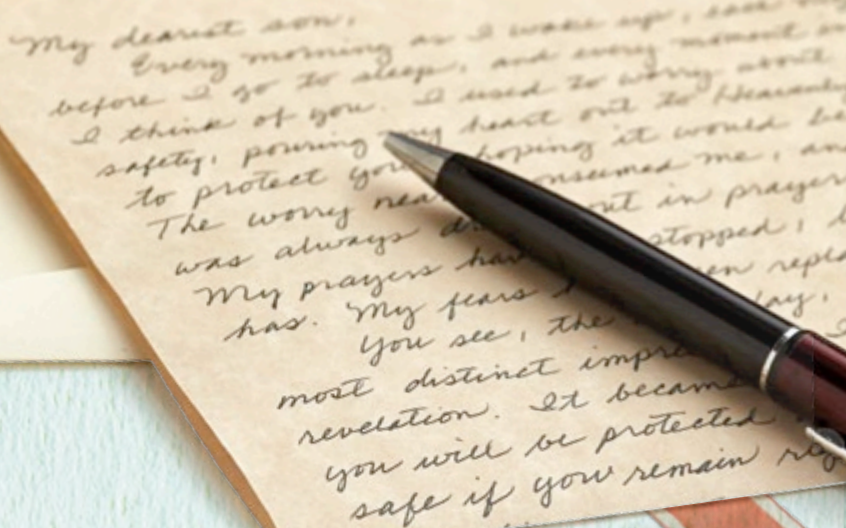 My dearest son,
Every morning as I wake up, each
before I go to sleep, and every moment in
I think of you. I used to worry about
safety, pouring my heart out to Heavenly
to protect you, hoping it would be
The worry near consumed me, and
was always out in prayer
My prayers stopped,
has. My fears been
You see, the day,
most distinct
revelation. It became
you will be protected
safe if you remain